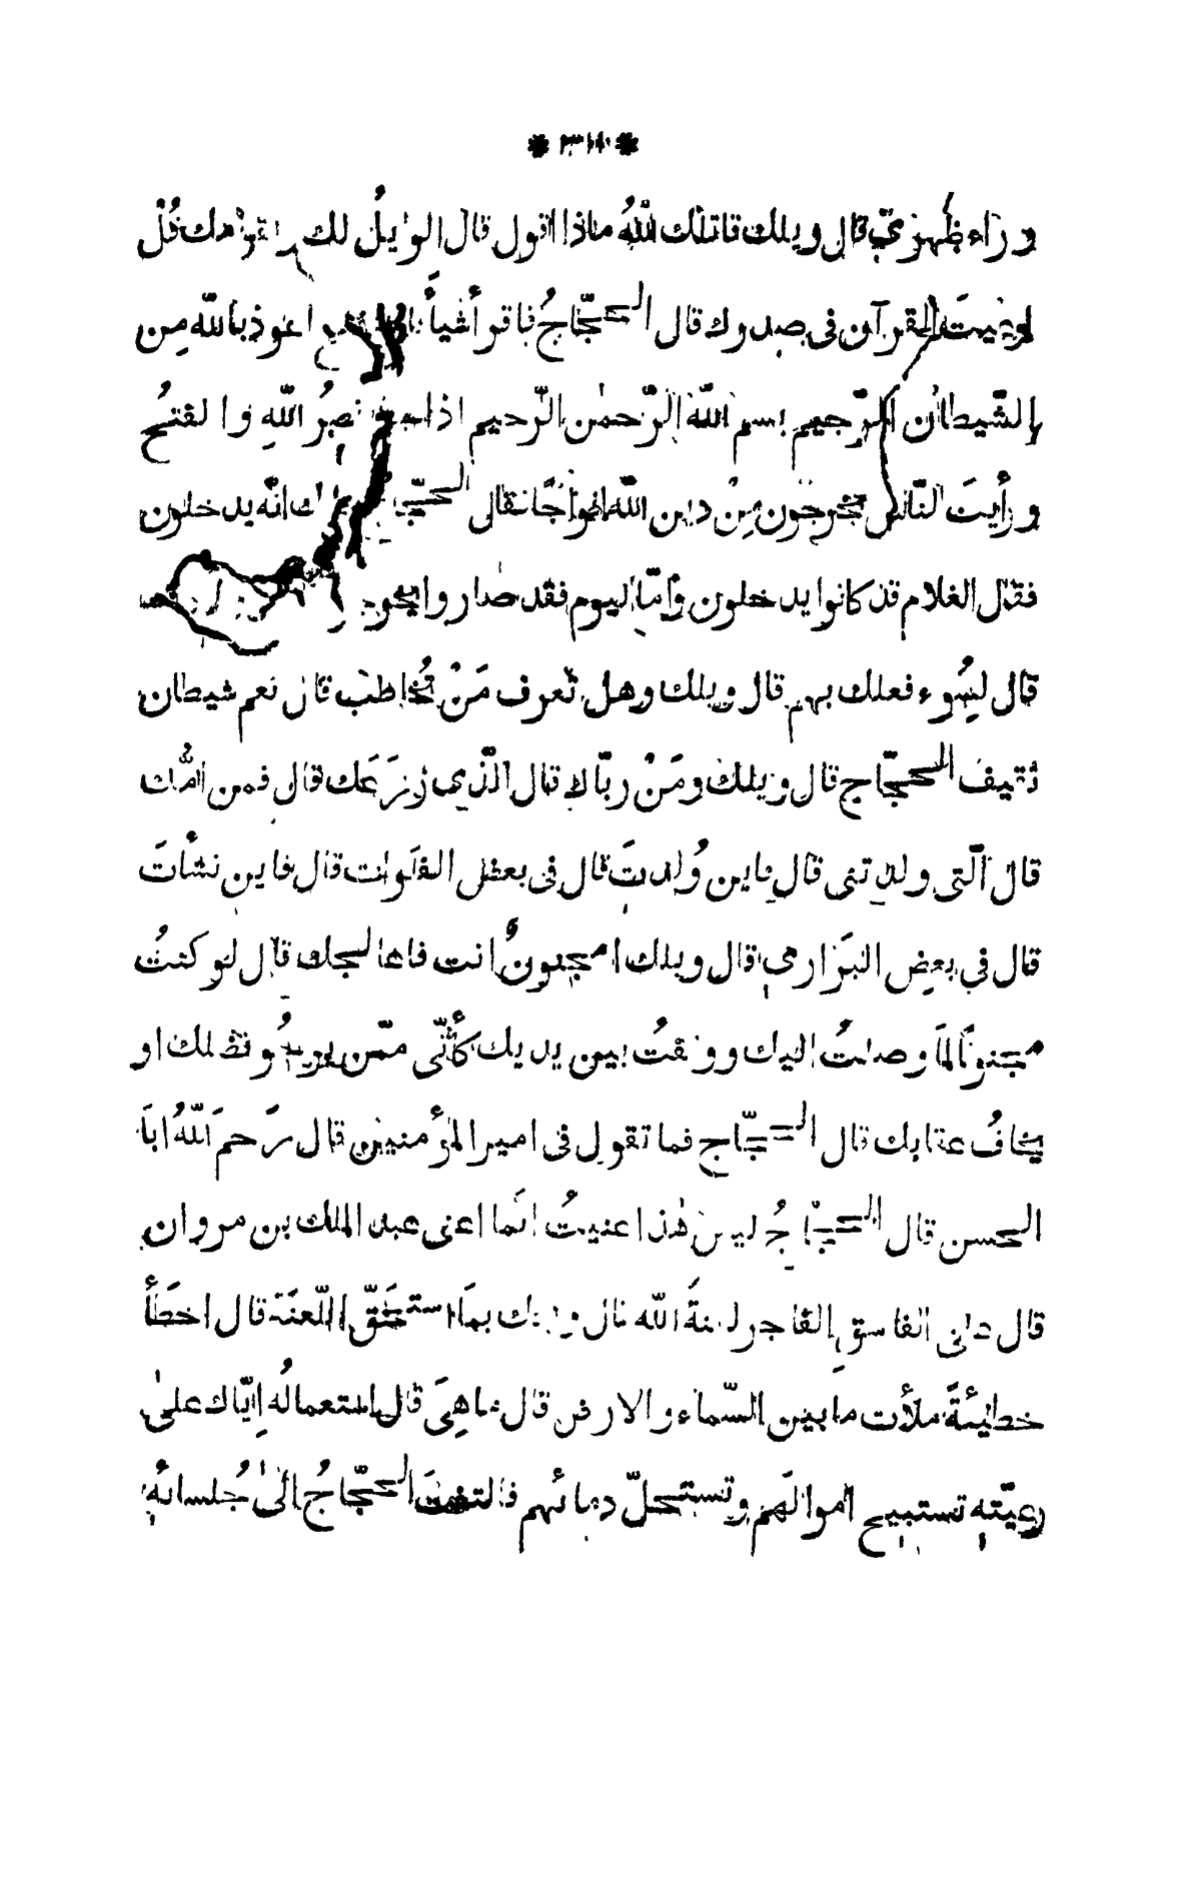 وراء ظهري قال ويلك قاتلك اللهُ ماذا اقول قال الويلُ لك ولقومك قُلْ
اوعيتَ القرآن فى صدرك قال الحجّاجُ فاقرأ شيأً اعوذ بالله مِن
الشّيطان الرّجيم بسم اللّه الرّحمٰن الرّحيم اذا جاء نصرُ اللّهِ والفتحُ
ورأيتَ النّاس يخرجون مِنْ دين اللّه افواجًا فقال الحجّاج انّه يدخلون
فقال الغلام قد كانوا يدخلون وأمّا اليوم فقد صاروا يخرجون
قال لسُوء فعلك بهم قال ويلك وهل تعرف مَنْ تُخاطب قال نعم شيطان
ثقيف الحجّاج قال ويلك ومَنْ ربّاك قال الّذى زرَعَك قال فمن امُّك
قال الّتى ولدتنى قال فاين وُلدتَ قال فى بعض الفلوات قال فاين نشأتَ
قال فى بعض البَرارى قال ويلك امجنونٌ انت فاعالجك قال لو كنتُ
مجنونًا لمَا وصلتُ اليك ووقفتُ بين يديك كأنّى ممّن يريدُ فضلك او
يخافُ عقابك قال الحجّاج فما تقول فى امير المؤمنين قال رَحمَ اللّهُ ابَا
الحسن قال الحجّاجُ ليس هٰذا عنيتُ انّما اعنى عبد الملك بن مروان
قال على الفاسق الفاجر لعنةُ اللّه قال ويلك بمَا استحَقّ اللّعنَة قال اخطَأ
خطيئةً ملأت ما بين السّماء والارض قال ما هِىَ قال استعمالُه إيّاك علىٰ
رعيّته تستبيح اموالَهم وتستحلّ دمائهم فالتفتَ الحجّاجُ الىٰ جُلسائه